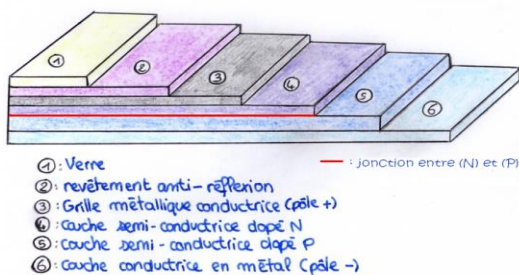 1
2
3
4
5
6
① : Verre
② : revêtement anti-réflexion
③ : Grille métallique conductrice (pôle +)
④ : couche semi-conductrice dopé N
⑤ : couche semi-conductrice dopé P
⑥ : couche conductrice en métal (pôle -)
: jonction entre (N) et (P)